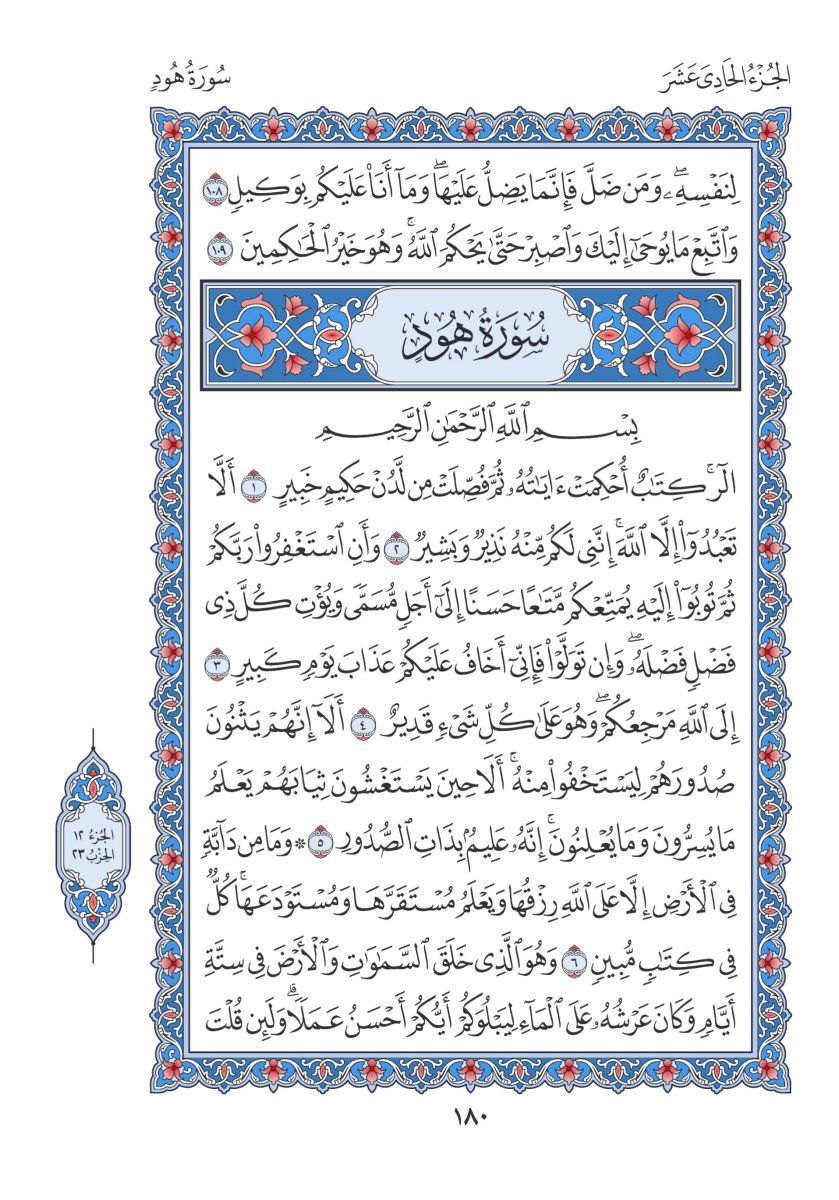 الجُزْءُ الحَادِىَ عَشَرَ
سُورَةُ هُودٍ
لِنَفْسِهِۦۖ وَمَن ضَلَّ فَإِنَّمَا يَضِلُّ عَلَيْهَاۖ وَمَآ أَنَا۠ عَلَيْكُم بِوَكِيلٍ ١٠٨
وَٱتَّبِعْ مَا يُوحَىٰٓ إِلَيْكَ وَٱصْبِرْ حَتَّىٰ يَحْكُمَ ٱللَّهُۚ وَهُوَ خَيْرُ ٱلْحَـٰكِمِينَ ١٠٩
سُورَةُ هُودٍ
بِسْمِ ٱللَّهِ ٱلرَّحْمَـٰنِ ٱلرَّحِيمِ
الٓرۚ كِتَـٰبٌ أُحْكِمَتْ ءَايَـٰتُهُۥ ثُمَّ فُصِّلَتْ مِن لَّدُنْ حَكِيمٍ خَبِيرٍ ١ أَلَّا
تَعْبُدُوٓا۟ إِلَّا ٱللَّهَۚ إِنَّنِى لَكُم مِّنْهُ نَذِيرٌ وَبَشِيرٌ ٢ وَأَنِ ٱسْتَغْفِرُوا۟ رَبَّكُمْ
ثُمَّ تُوبُوٓا۟ إِلَيْهِ يُمَتِّعْكُم مَّتَـٰعًا حَسَنًا إِلَىٰٓ أَجَلٍ مُّسَمًّى وَيُؤْتِ كُلَّ ذِى
فَضْلٍ فَضْلَهُۥۖ وَإِن تَوَلَّوْا۟ فَإِنِّىٓ أَخَافُ عَلَيْكُمْ عَذَابَ يَوْمٍ كَبِيرٍ ٣
إِلَى ٱللَّهِ مَرْجِعُكُمْۖ وَهُوَ عَلَىٰ كُلِّ شَىْءٍ قَدِيرٌ ٤ أَلَآ إِنَّهُمْ يَثْنُونَ
صُدُورَهُمْ لِيَسْتَخْفُوا۟ مِنْهُۚ أَلَا حِينَ يَسْتَغْشُونَ ثِيَابَهُمْ يَعْلَمُ
مَا يُسِرُّونَ وَمَا يُعْلِنُونَۚ إِنَّهُۥ عَلِيمٌۢ بِذَاتِ ٱلصُّدُورِ ٥ * وَمَا مِن دَآبَّةٍ
فِى ٱلْأَرْضِ إِلَّا عَلَى ٱللَّهِ رِزْقُهَا وَيَعْلَمُ مُسْتَقَرَّهَا وَمُسْتَوْدَعَهَاۚ كُلٌّ
فِى كِتَـٰبٍ مُّبِينٍ ٦ وَهُوَ ٱلَّذِى خَلَقَ ٱلسَّمَـٰوَٰتِ وَٱلْأَرْضَ فِى سِتَّةِ
أَيَّامٍ وَكَانَ عَرْشُهُۥ عَلَى ٱلْمَآءِ لِيَبْلُوَكُمْ أَيُّكُمْ أَحْسَنُ عَمَلًاۗ وَلَئِن قُلْتَ
الجُزْءُ ١٢
الحِزْبُ ٢٣
١٨٠